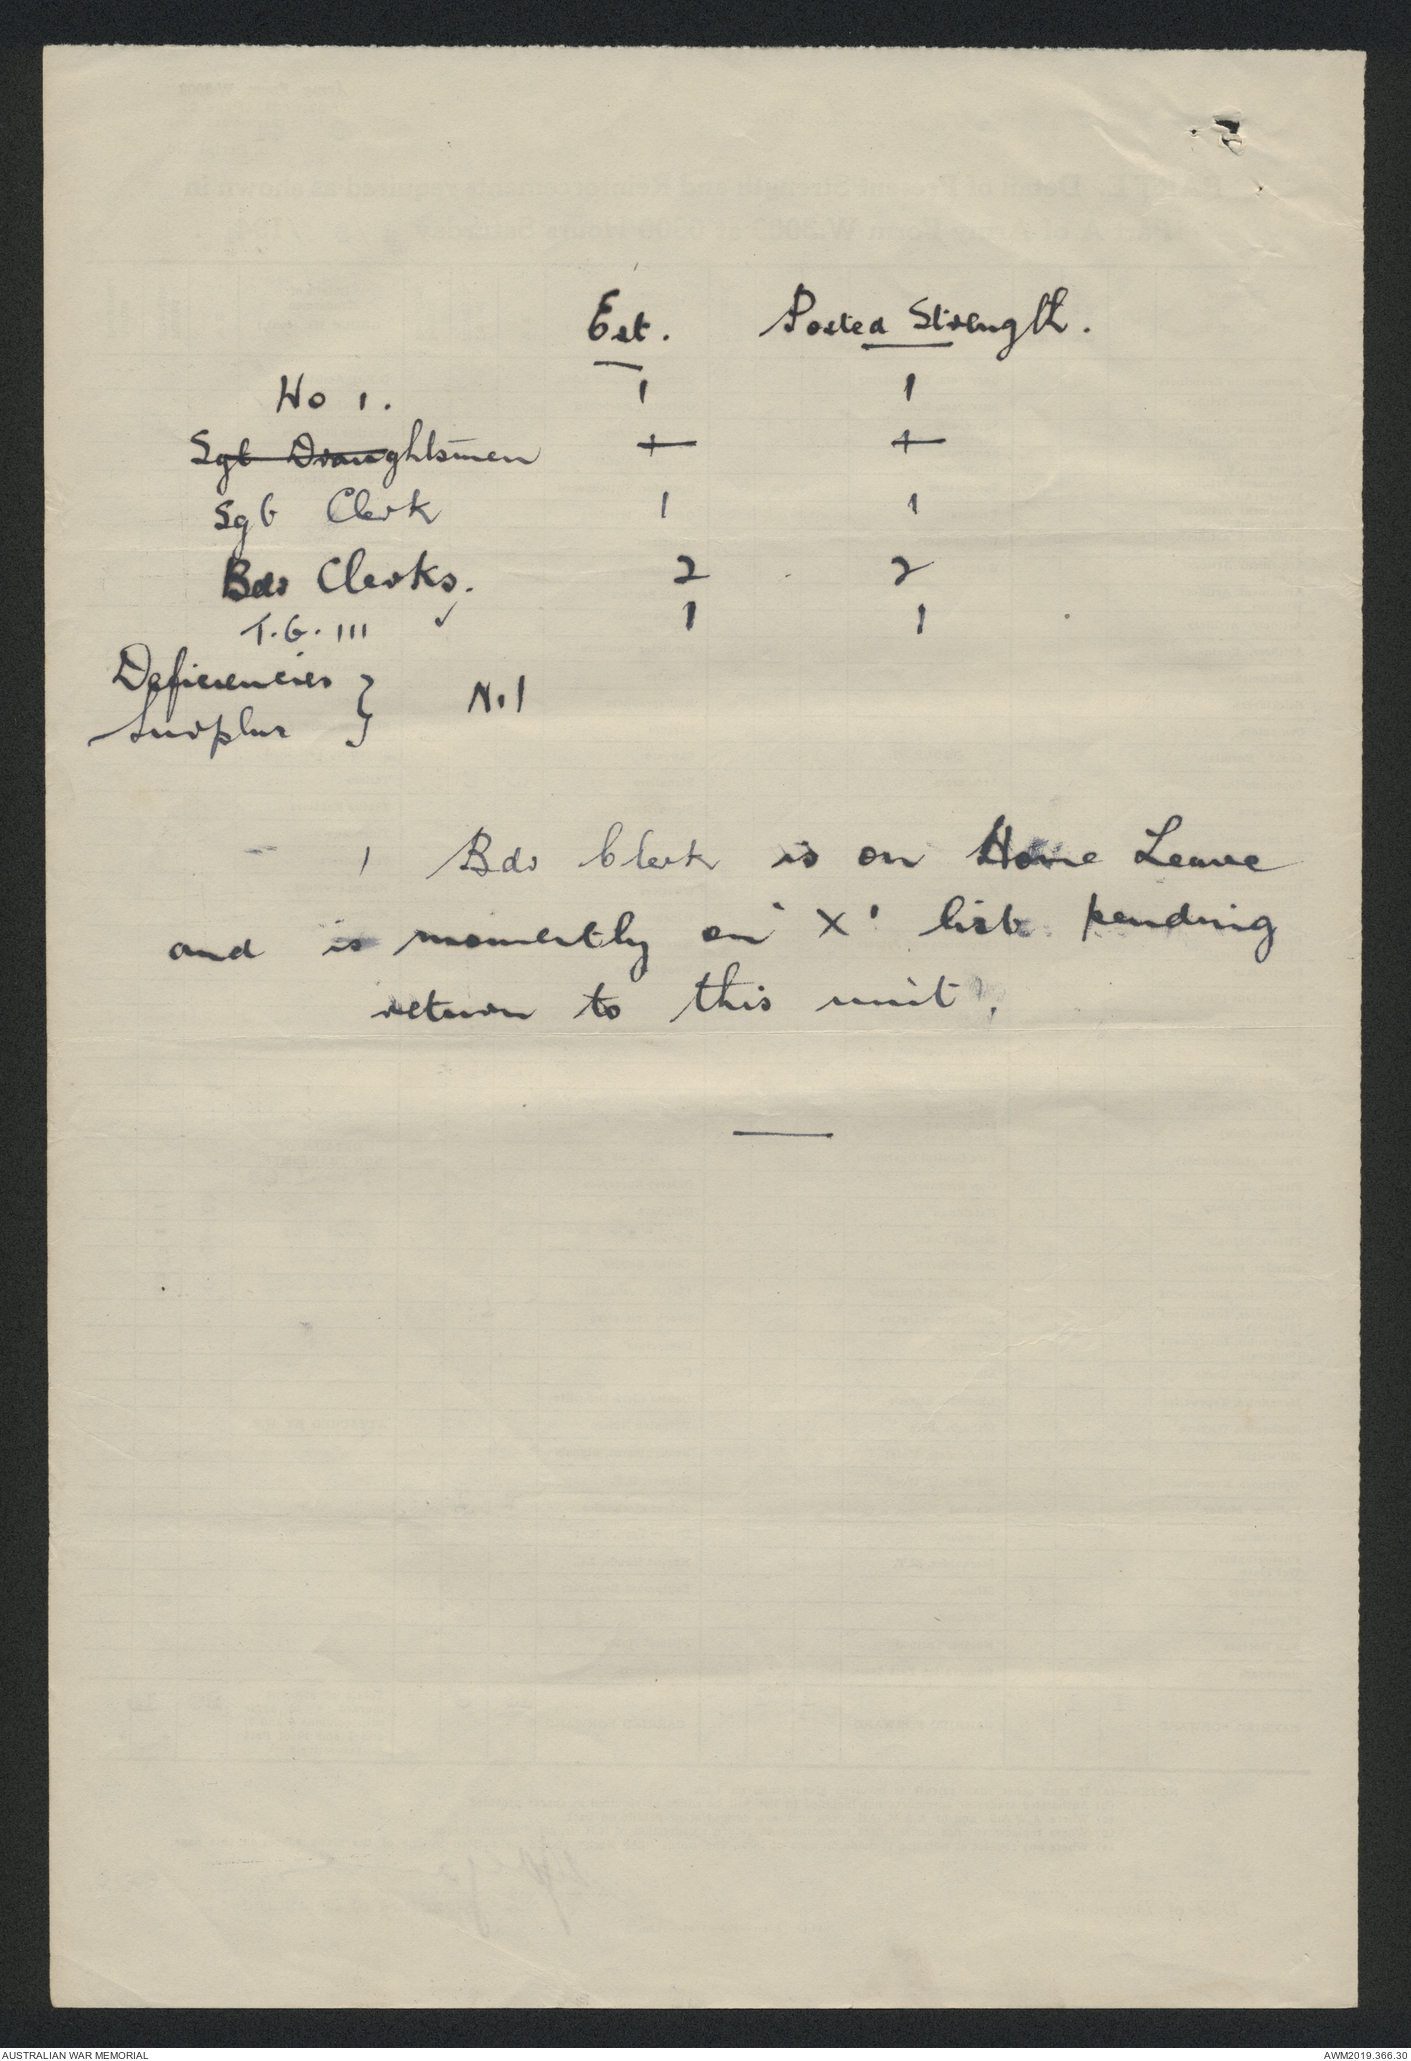 Est. Posted Strength.
No 1. 1 1
Sgt Draughtsmen 1 1
Sgt Clerk 1 1
Bdr Clerks. 2 2
T.G. III ✓ 1 1
Deficiencies }
Surplus } Nil
1 Bdr Clerk is on Home Leave
and is momently on 'X' list pending
return to this unit.
AUSTRALIAN WAR MEMORIAL
AWM2019.366.30